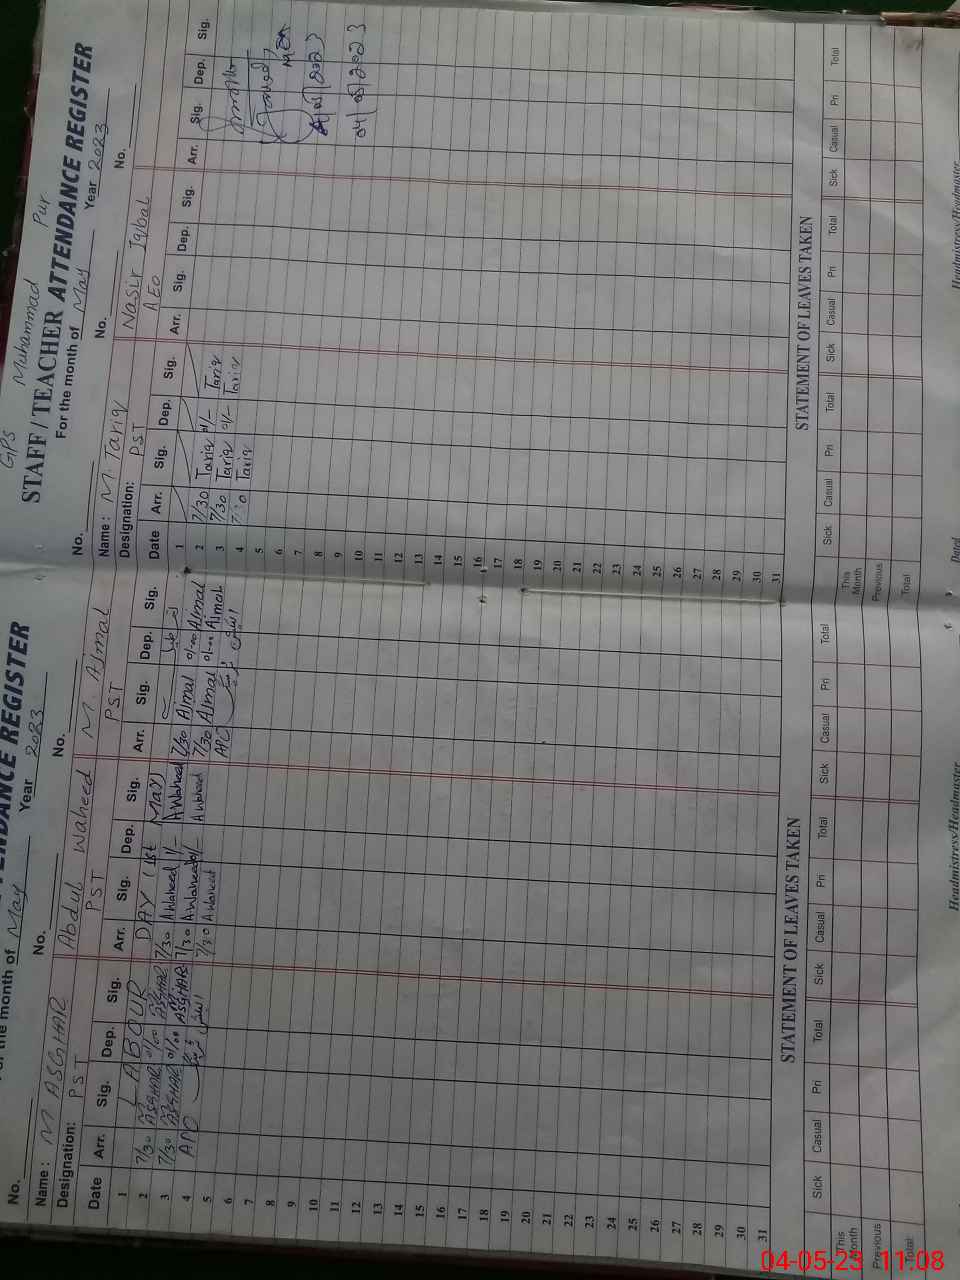 GPS Muhammad Pur
STAFF / TEACHER ATTENDANCE REGISTER
For the month of May Year 2023
No. No. No.
Name : M. Tariq Nasir Iqbal
Designation: PST AEO
Date Arr. Sig. Dep. Sig. Arr. Sig. Dep. Sig. Arr. Sig. Dep. Sig.
1
2 7/30 Tariq
3 7/30 Tariq 1/- Tariq
4 7/30 Tariq
5
6
7
8
9
10
11
12
13
14
15
16
17
18
19
20
21
22
23
24
25
26
27
28
29
30
31
MEA
04/05/2023
STATEMENT OF LEAVES TAKEN
Sick Casual Pri Total Sick Casual Pri Total Sick Casual Pri Total
This Month
Previous
Total
Dated Headmistress/Headmaster
ENDANCE REGISTER
For the month of May Year 2023
No. No. No.
Name : M ASGHAR Abdul Waheed M. Ajmal
Designation: PST PST PST
Date Arr. Sig. Dep. Sig. Arr. Sig. Dep. Sig. Arr. Sig. Dep. Sig.
1 LABOUR DAY (1st MAY)
2 7/30 M. ASGHAR 01/00 M. ASGHAR 7/30 A Waheed 1/- A Waheed 7/30 Ajmal 01-00 Ajmal
3 7/30 M. ASGHAR 01/00 M. ASGHAR 7/30 A Waheed 01/- A Waheed 7/30 Ajmal 01-00 Ajmal
4 APO 7/30 A Waheed APO
5
6
7
8
9
10
11
12
13
14
15
16
17
18
19
20
21
22
23
24
25
26
27
28
29
30
31
STATEMENT OF LEAVES TAKEN
Sick Casual Pri Total Sick Casual Pri Total Sick Casual Pri Total
This Month
Previous
Total
Headmistress/Headmaster
04-05-23 11:08